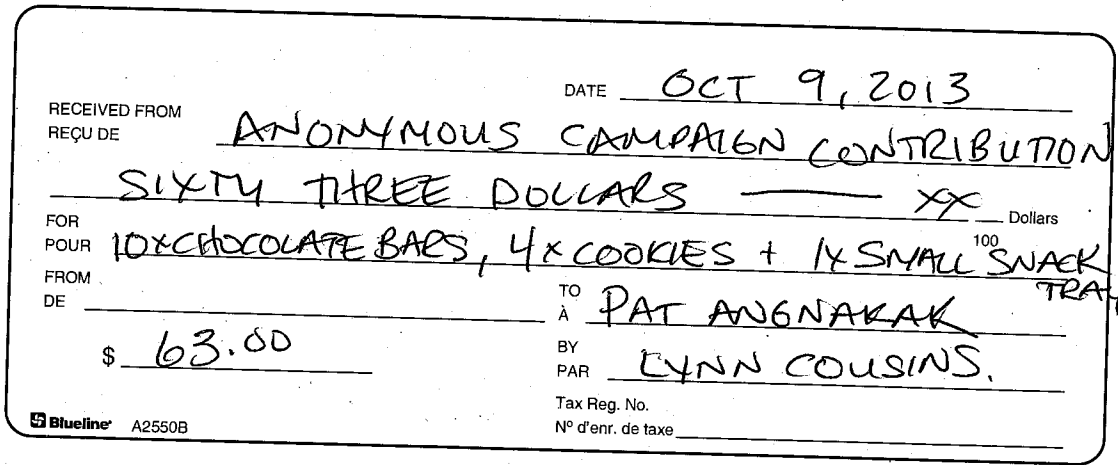 DATE OCT 9, 2013
RECEIVED FROM
REÇU DE ANONYMOUS CAMPAIGN CONTRIBUTION
SIXTY THREE DOLLARS — XX Dollars
100
FOR
POUR 10xCHOCOLATE BARS, 4x COOKIES + 1x SMALL SNACK
TRAY
FROM
DE
TO
À PAT ANGNAKAK
$ 63.00
BY
PAR LYNN COUSINS.
Tax Reg. No.
Nº d'enr. de taxe
Blueline A2550B